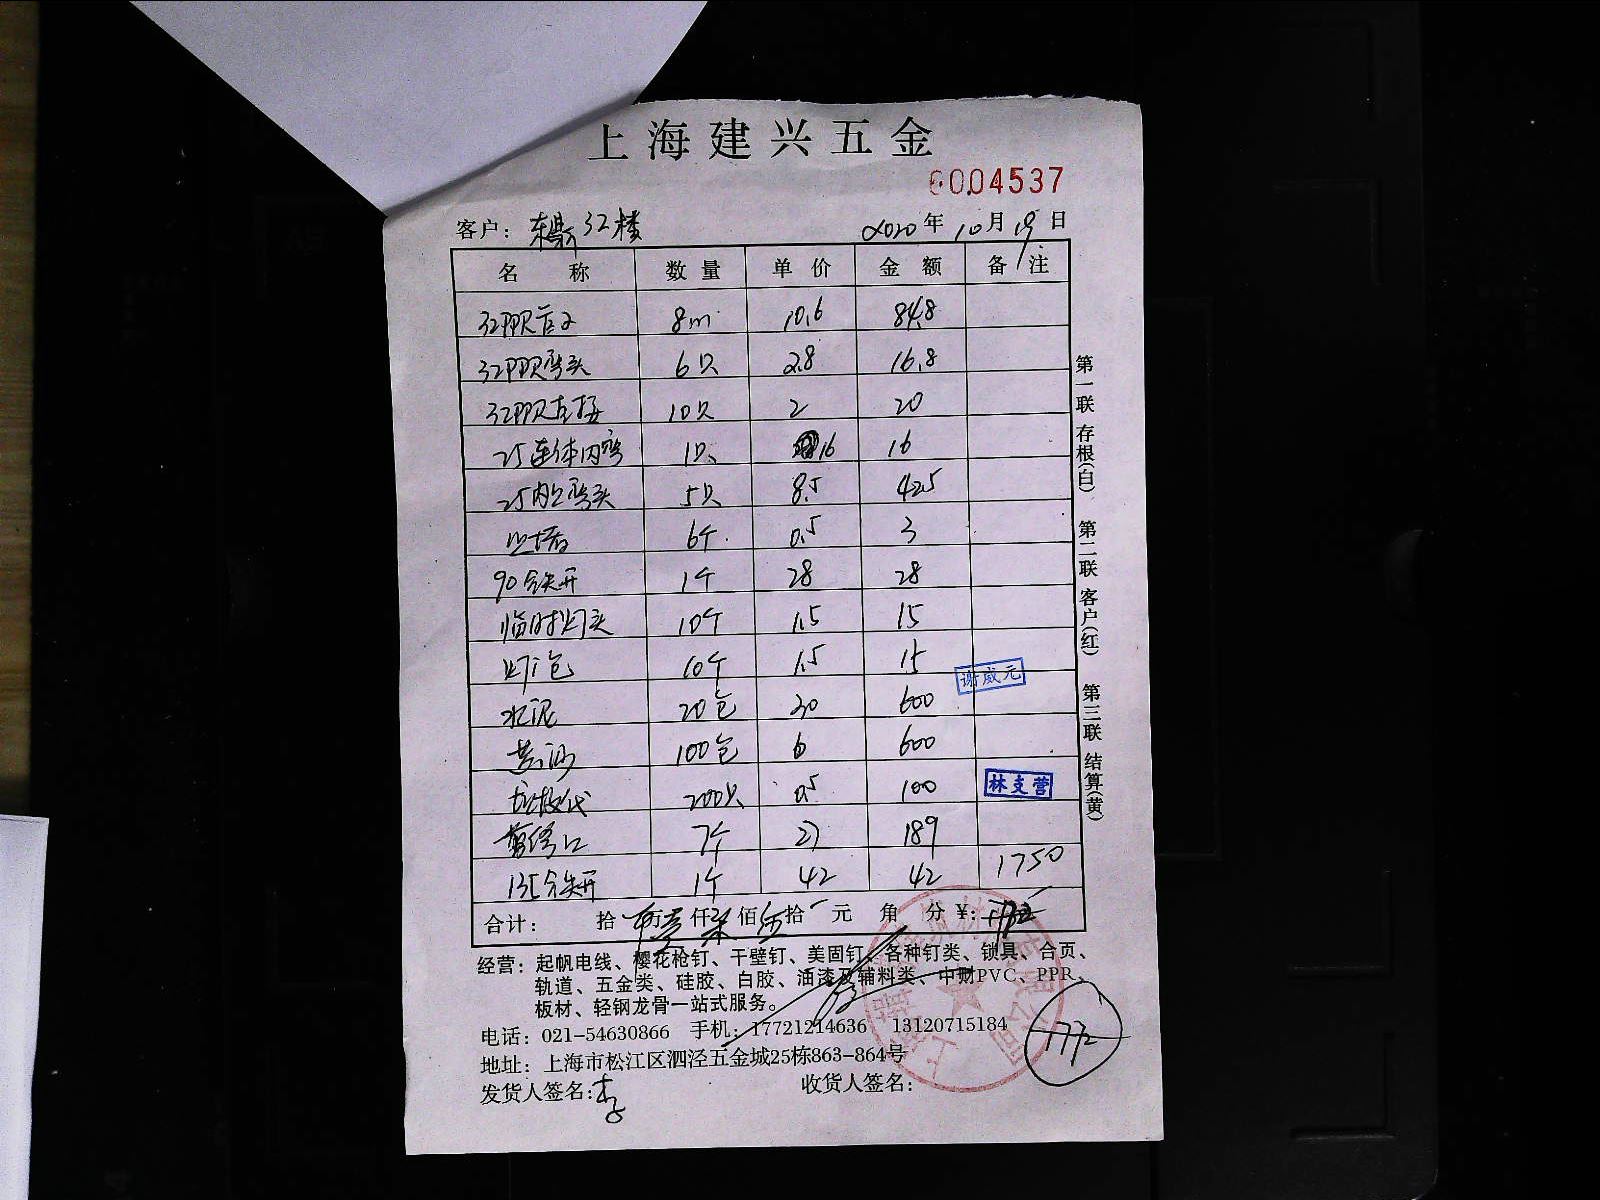 上海建兴五金
6004537
客户： 32楼 2020年10月19日
名称 数量 单价 金额 备注
32PPR管子 8m 10.6 84.8
32PPR弯头 6只 2.8 16.8
32PPR直接 10只 2 20
25连体内弯 1只 16 16
25内丝弯头 5只 8.5 42.5
丝堵 6个 0.5 3
90公分铁开 1个 28 28
临时灯头 10个 1.5 15
灯泡 10个 1.5 15
谢威元
水泥 20包 30 600
黄沙 100包 6 600
垃圾袋 200只 0.5 100
林支营
7个 27 189
135公分铁开 1个 42 42 1750
合计： 拾 万壹仟柒佰伍拾 元 角 分 ¥:
第一联 存根(白) 第二联 客户(红) 第三联 结算(黄)
经营：起帆电线、樱花枪钉、干壁钉、美固钉、各种钉类、锁具、合页、
轨道、五金类、硅胶、白胶、油漆及辅料类、中财PVC、PPR、
板材、轻钢龙骨一站式服务。
电话：021-54630866 手机：17721214636 13120715184
1772
地址：上海市松江区泗泾五金城25栋863-864号
发货人签名:李 收货人签名: